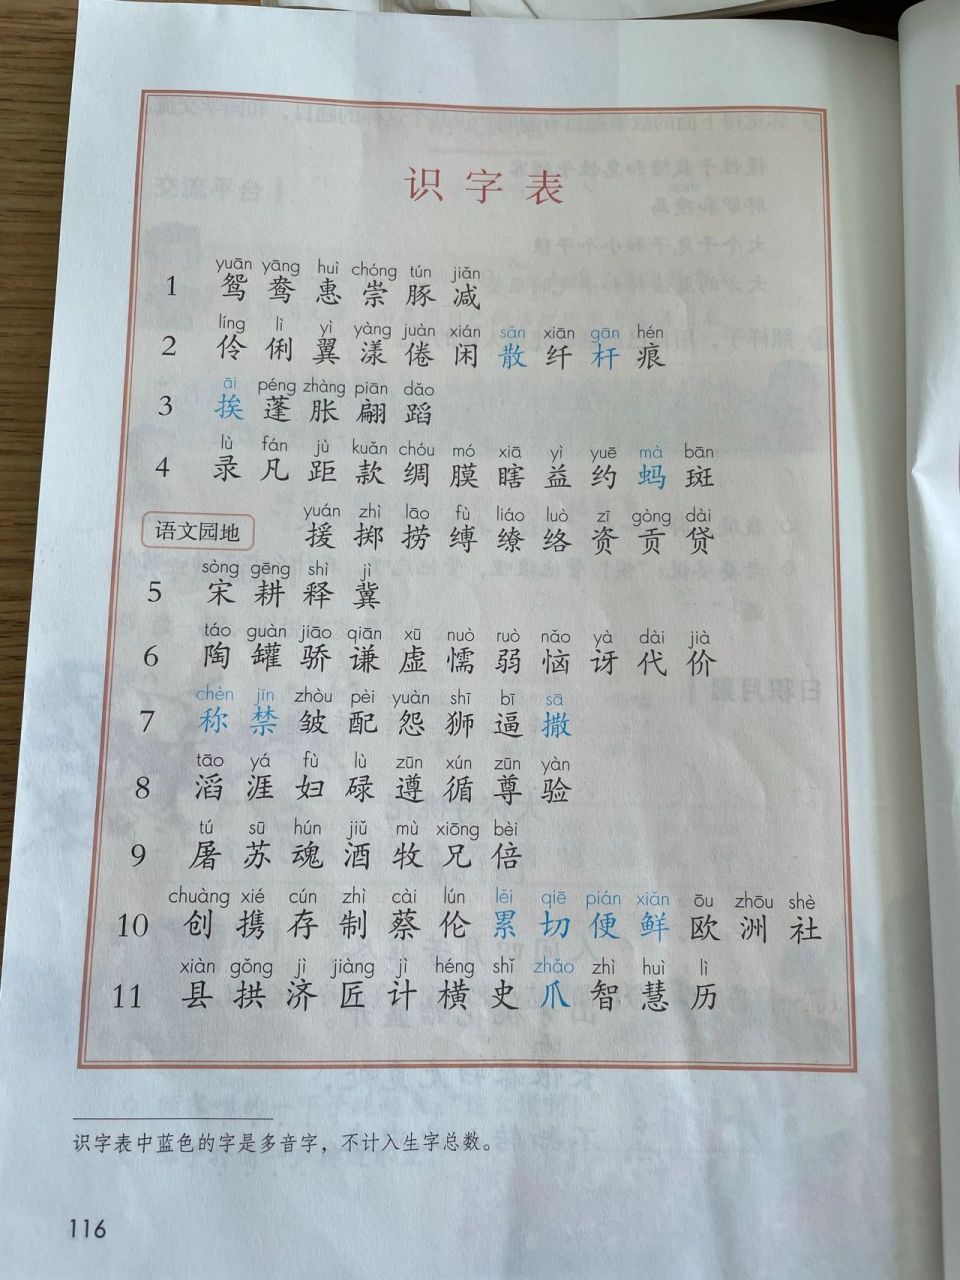 识字表
yuān yāng huì chóng tún jiǎn
1 鸳 鸯 惠 崇 豚 减
líng lì yì yàng juàn xián sǎn xiān gān hén
2 伶 俐 翼 漾 倦 闲 散 纤 杆 痕
āi péng zhàng piān dǎo
3 挨 蓬 胀 翩 蹈
lù fán jù kuǎn chóu mó xiā yì yuē mà bān
4 录 凡 距 款 绸 膜 瞎 益 约 蚂 斑
yuán zhì lāo fù liáo luò zī gòng dài
语文园地 援 掷 捞 缚 缭 络 资 贡 贷
sòng gēng shì jì
5 宋 耕 释 冀
táo guàn jiāo qiān xū nuò ruò nǎo yà dài jià
6 陶 罐 骄 谦 虚 懦 弱 恼 讶 代 价
chèn jīn zhòu pèi yuàn shī bī sā
7 称 禁 皱 配 怨 狮 逼 撒
tāo yá fù lù zūn xún zūn yàn
8 滔 涯 妇 碌 遵 循 尊 验
tú sū hún jiǔ mù xiōng bèi
9 屠 苏 魂 酒 牧 兄 倍
chuàng xié cún zhì cài lún lěi qiē pián xiǎn ōu zhōu shè
10 创 携 存 制 蔡 伦 累 切 便 鲜 欧 洲 社
xiàn gǒng jì jiàng jì héng shǐ zhǎo zhì huì lì
11 县 拱 济 匠 计 横 史 爪 智 慧 历
识字表中蓝色的字是多音字，不计入生字总数。
116